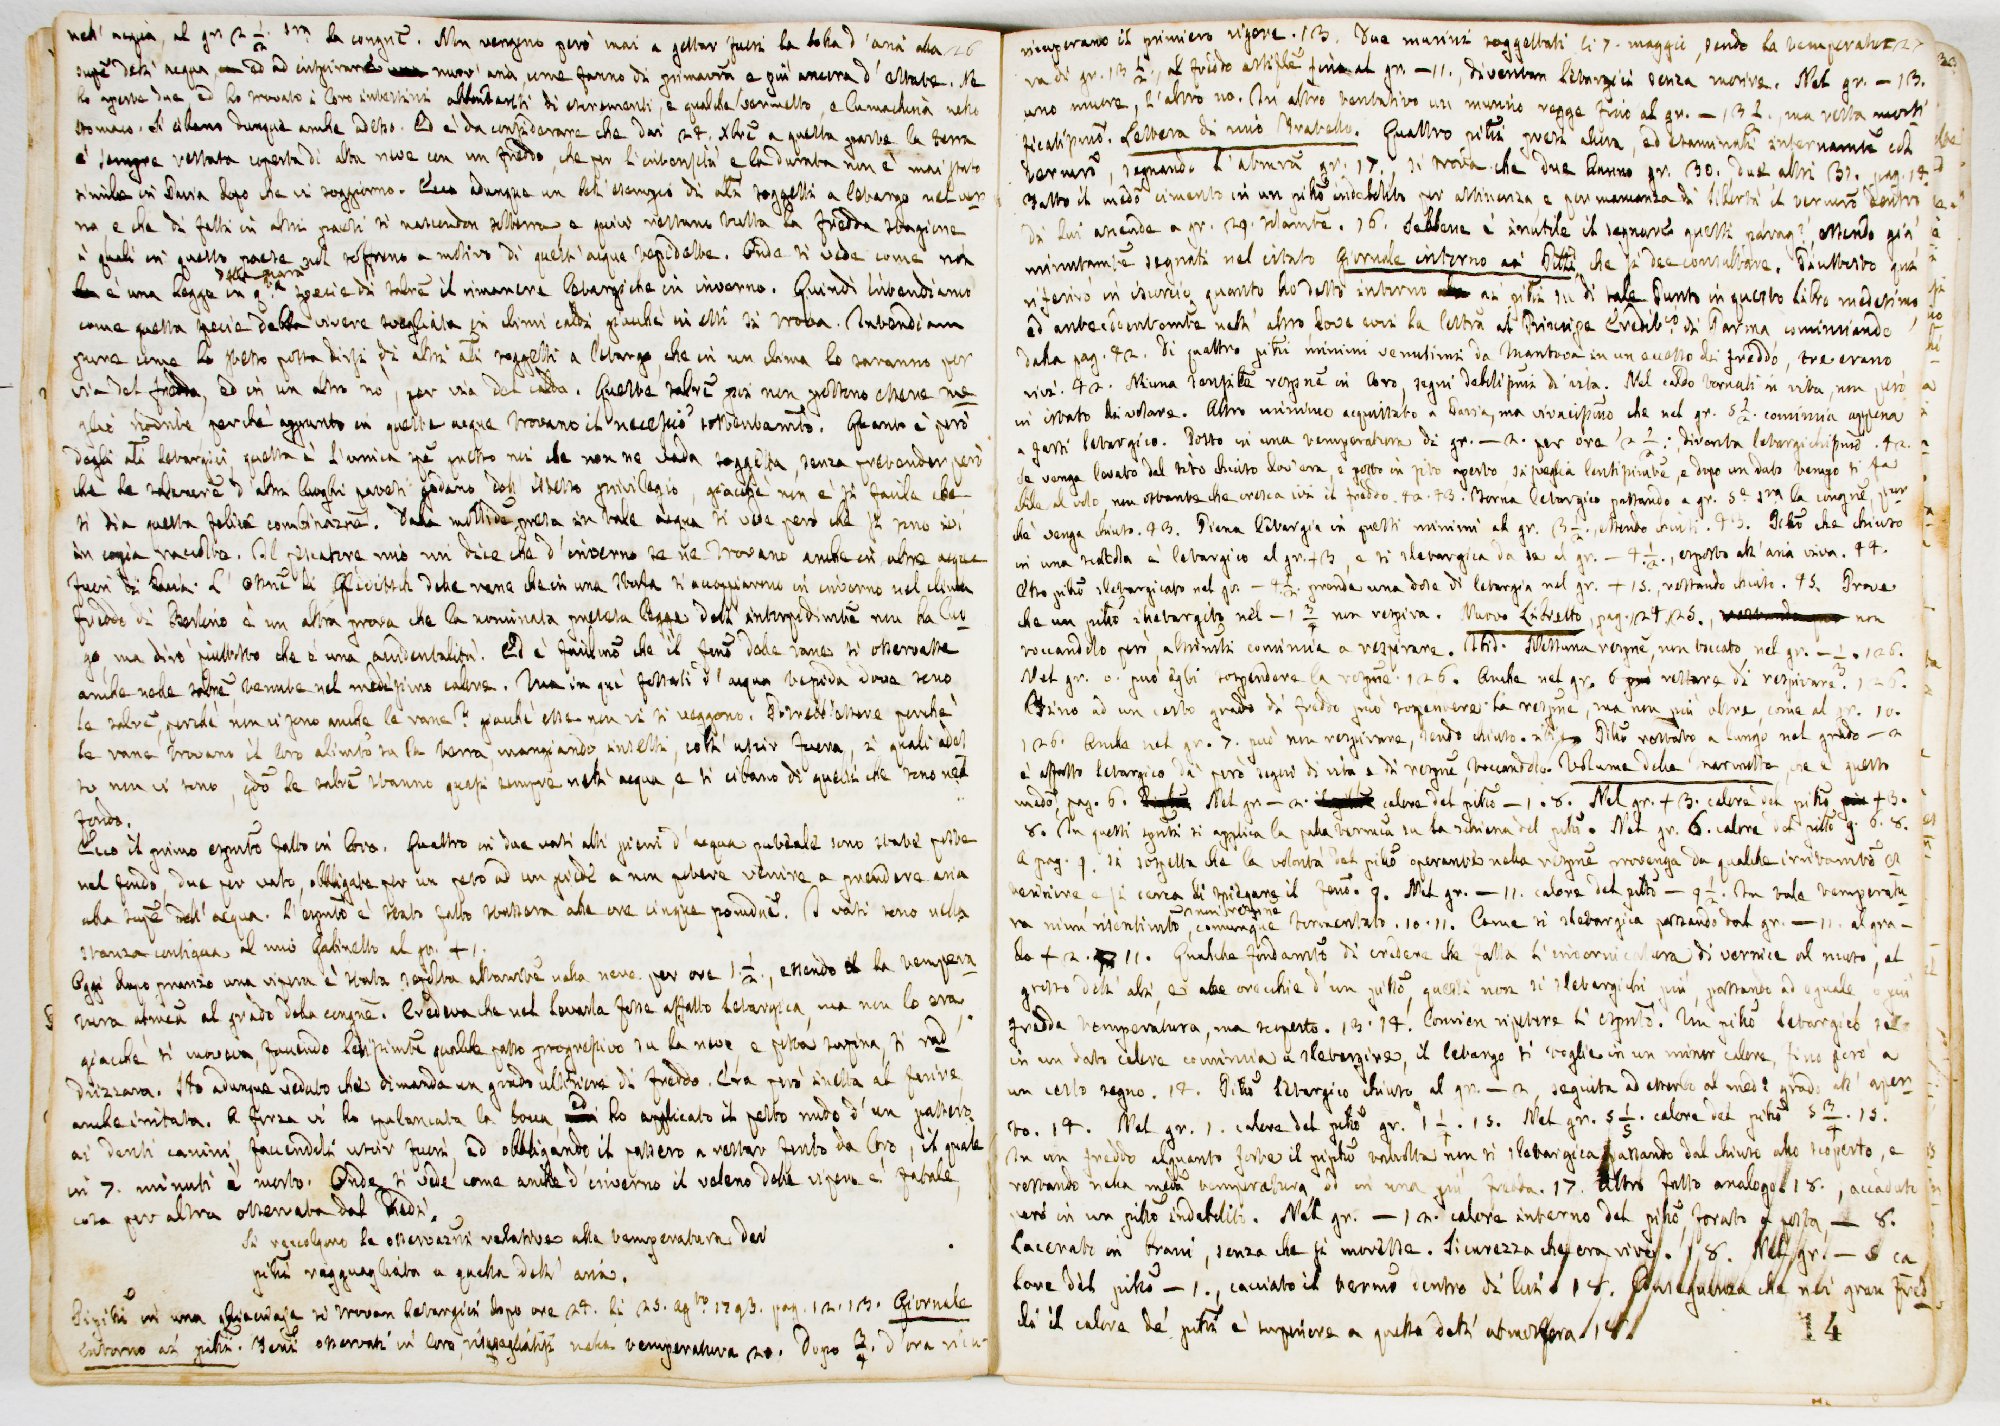 nell' acqua, al gr. 2 1/2. sra la congne. Non vengono però mai a gettar fuori la bolla d'aria alla 26
supe dell' acqua ed ad inspirare nuov' aria, come fanno di primavera e più ancora d' estate. Ne
ho aperte due, ed ho trovato i loro intestini di escrementi, e qualche vermetto e lumachina nello
stomaco. Si cibano dunque anche adesso. Ed è da considerare che dai 24. Xbre a questa parte la terra
è sempre restata coperta di alta neve con un freddo, che per l'intensità e la durata non è mai stato
simile in Pavia dopo che ci soggiorno. Ecco adunque un bell' esempio di altri soggetti a letargo nel ver
no e che di fatti in altri paesi si nascondon sotterra e quivi restano tutta la fredda stagione
i quali in questo paese nol soffrono a motivo di quest' acque tepidette. Onde si vede come non
è una legge in qta specie di salre il rimanere letargiche in inverno. Quindi intendiamo
come questa specie debba vivere svegliata in climi caldi giacchè in essi si trova. Intendiam
pure come lo stesso possa dirsi di altri ali soggetti a letargo, che in un clima lo saranno per
via del freddo, ed in un altro no, per via del caldo. Queste salre poi non possono essere me
glio nodrite, perchè appunto in queste acque trovano il necessio sostentamto. Quanto è però
degli ali letargici, questa è l'unica spe presso noi che non ne vada soggetta, senza pretender però
che le salamre d' altri luoghi paresi godano dell' istesso privilegio, giacchè non è sì facile che
si dia questa felice combinazne. Dalla moltitudne presa in tale acqua si vede però che si sono ivi
in copia raccolte. Il pescatore mio mi dice che d' inverno se ne trovano anche in altre acque
fuori di Pavia. L' ossne di Gleditsch delle rane che in una stufa si accoppiarono in inverno nel clima
freddo di Berlino è un altra prova che la nominata pretesa legge dell' intorpidimte non ha luo
go, ma dirò piuttosto che è una accidentalità. Ed è facilmo che il feno delle rane si osservasse
anche nelle salre, tenute nel medesimo calore. Ma in que' fossati d' acqua tepida dove sono
le salre, perchè non vi sono anche le rane? giacchè esse non vi si veggono. Potrebb' essere perchè
le rane trovano il loro alimto su la terra, mangiando insetti, coll' uscir fuora, i quali ades
so non vi sono, qdo le salre stanno quasi sempre nell' acqua, e si cibano di quelli che sono nel
fondo.
Ecco il primo espnto fatto in loro. Quattro in due vasi alti pieni d' acqua puteale sono state poste
nel fondo, due per vaso, obbligate per un peso ad un piede a non potere venire a prendere aria
alla supe dell' acqua. L' espnto è stato fatto stassera alle ore cinque pomdne. I vasi sono nella
stanza contigua al mio Gabinetto al gr. + 1.
Oggi dopo pranzo una vipera è stata sepolta altamte nella neve per ore 1 1/2., essendo la tempera
tura atmca al grado della congne. Credeva che nel levarla fosse affatto letargica, ma non lo era,
giacchè si moveva, facendo lentissimte qualche passo progressivo su la neve, e posta supina, si rad
drizzava. Ho adunque veduto che dimanda un grado ulteriore di freddo. Era però inetta al ferire
anche irritata. A forza vi ho spalancata la bocca, ed ho applicato il petto nudo d' un passero
ai denti canini, facendoli uscir fuori, ed obbligando il passero a restar ferito da loro, il quale
in 7. minuti è morto. Onde si vede come anche d' inverno il veleno delle vipere è fatale,
cosa per altro osservata dal Redi.
Si raccolgono le osservazni relative alla temperatura dei
pipli ragguagliata a quella dell' aria.
Pipilli in una ghiacciaja si trovan letargici dopo ore 24. li 25. agto 1793. pag. 12. 13. Giornale
intorno ai pipli. Feni osservati in loro, risvegliatisi nella temperatura 20. Dopo 3/4. d' ora ricu-
ricuperano il primiero vigore. 13. Due murini soggettati li 7. maggio, sendo la temperatu 27
ra di gr. 13 1/2., al freddo artifle fino al gr. – 11., diventan letargici senza morire. Nel gr. – 13.
uno muore, l' altro no. In altro tentativo un murino regge fino al gr. – 13 1/2., ma resta morti
ficatissimo. Lettera di mio Fratello. Quattro pipli presi allora, ed esaminati internamte col
termro, segnando l' atmra gr. 17., si trova che due hanno gr. 30. due altri 31. pag. 14.
Fatto il medo cimento in un piplo indebolito per astinenza e per mancanza di libertà il termro dentro
di lui ascende a gr. 29. solamte. 16. Sebbene è inutile il segnare questi paragi, essendo già
minutamte segnati nel citato Giornale intorno ai Pipli che si dee consultare. Piuttosto qui
riferirò in iscorcio quanto ho detto intorno ai pipli su di tale punto in questo libro medesimo
ed antecedentemte nell' altro dove evvi la lettera al Principe Ereditro di Parma cominciando
dalla pag. 42. Di quattro pipli minimi venutimi da Mantova in un eccesso di freddo, tre erano
vivi. 42. Niuna sensible respne in loro, segni debolissimi di vita. Nel caldo tornati in vita, non però
in istato di volare. Altro minimo acquistato a Pavia, ma vivacissimo che nel gr. 5 1/2. comincia appena
a farsi letargico. Posto in una temperatura di gr. – 2. per ore 2 1/2.: diventa letargichissimo. 42.
Se venga levato dal sito chiuso dov' era, e posto in sito aperto si sveglia lentissimte, e dopo un dato tempo si fa
abile al volo, non ostante che cresca ivi il freddo. 42. 43. Torna letargico passando a gr. 5 sra la congne, pur
chè venga chiuso. 43. Piena letargia in questi minimi al gr. 3 1/2., essendo chiusi. 43. Piplo che chiuso
in una scatola è letargico al gr. + 3, e si sletargica da se al gr. – 4 1/2., esposto all' aria viva. 44.
Altro piplo sletargicato nel gr. – 4 1/2. prende una dose di letargia nel gr. + 15., restando chiuso. 45. Prove
che un piplo sletargito nel – 1 3/4 non respira. Nuovo Libretto, pag. 124. 125., non
toccandolo però, altrimti comincia a respirare. Ibid. Nessuna respne, non toccato nel gr. – 1/3. 126.
Nel gr. 0. può egli sospendere la respne. 126. Anche nel gr. 6 restare di respirare. 126.
Fino ad un certo grado di freddo può sospendere la respne, ma non più oltre, come al gr. 10.
126. Anche nel gr. 7. può non respirare, sendo chiuso. Piplo restato a lungo nel grado – 2
è affatto letargico dà però segni di vita e di respne, toccandolo. Volume delle Marmotte, che è questo
medo, pag. 6. Nel gr. – 2. calore del piplo – 1. 8. Nel gr. + 3. calore del piplo + 3.
8. In questi espnti si applica la palla termca su la schiena del piplo. Nel gr. 6. calore del piplo g. 6. 8.
A pag. 9. si sospetta che la volontà del piplo operante nella respne provenga da qualche irritamto
venirne, e si cerca di spiegare il feno. 9. Nel gr. – 11. calore del piplo – 9 1/2. In tale temperatu
ra niun risentimto, niuna respne comunque tormentato. 10. 11. Come si sletargica passando dal gr. – 11. al gra-
do + 2. 11. Qualche fondamto di credere che fatta l' incorniciatura di vernice al muso, al
grosso dell' ali, e alle orecchie d' un piplo, questi non si sletargichi più, passando ad eguale, o più
fredda temperatura, ma scoperto. 13. 14. Convien ripetere l' espnto. Un piplo letargico se
in un dato calore comincia a sletargirsi, il letargo si toglie in un minor calore, fino però a
un certo segno. 14. Piplo letargico chiuso al gr. – 2, seguita ad esserlo al medo grado all' aper-
to. 14. Nel gr. 1. calore del piplo gr. 1 1/4. 15. Nel gr. 5 1/5. calore del piplo 5 3/4. 15.
In un freddo alquanto forte il piplo talvolta non si sletargica passando dal chiuso allo scoperto, e
restando nella meda temperatura, od in una più fredda. 17. Altro fatto analogo. 18., accaduto
però in un piplo indebolito. Nel gr. – 12. calore interno del piplo, forato a posta, – 8.
Lacerato in brani, senza che si movesse. Sicurezza che era vivo. 18. Nel gr. – 5 ca
lore del piplo – 1., cacciato il termro dentro di lui. 18. Conseguenza che nei gran fred
di il calore de' pipli è superiore a quella dell' atmosfera. 18.
14